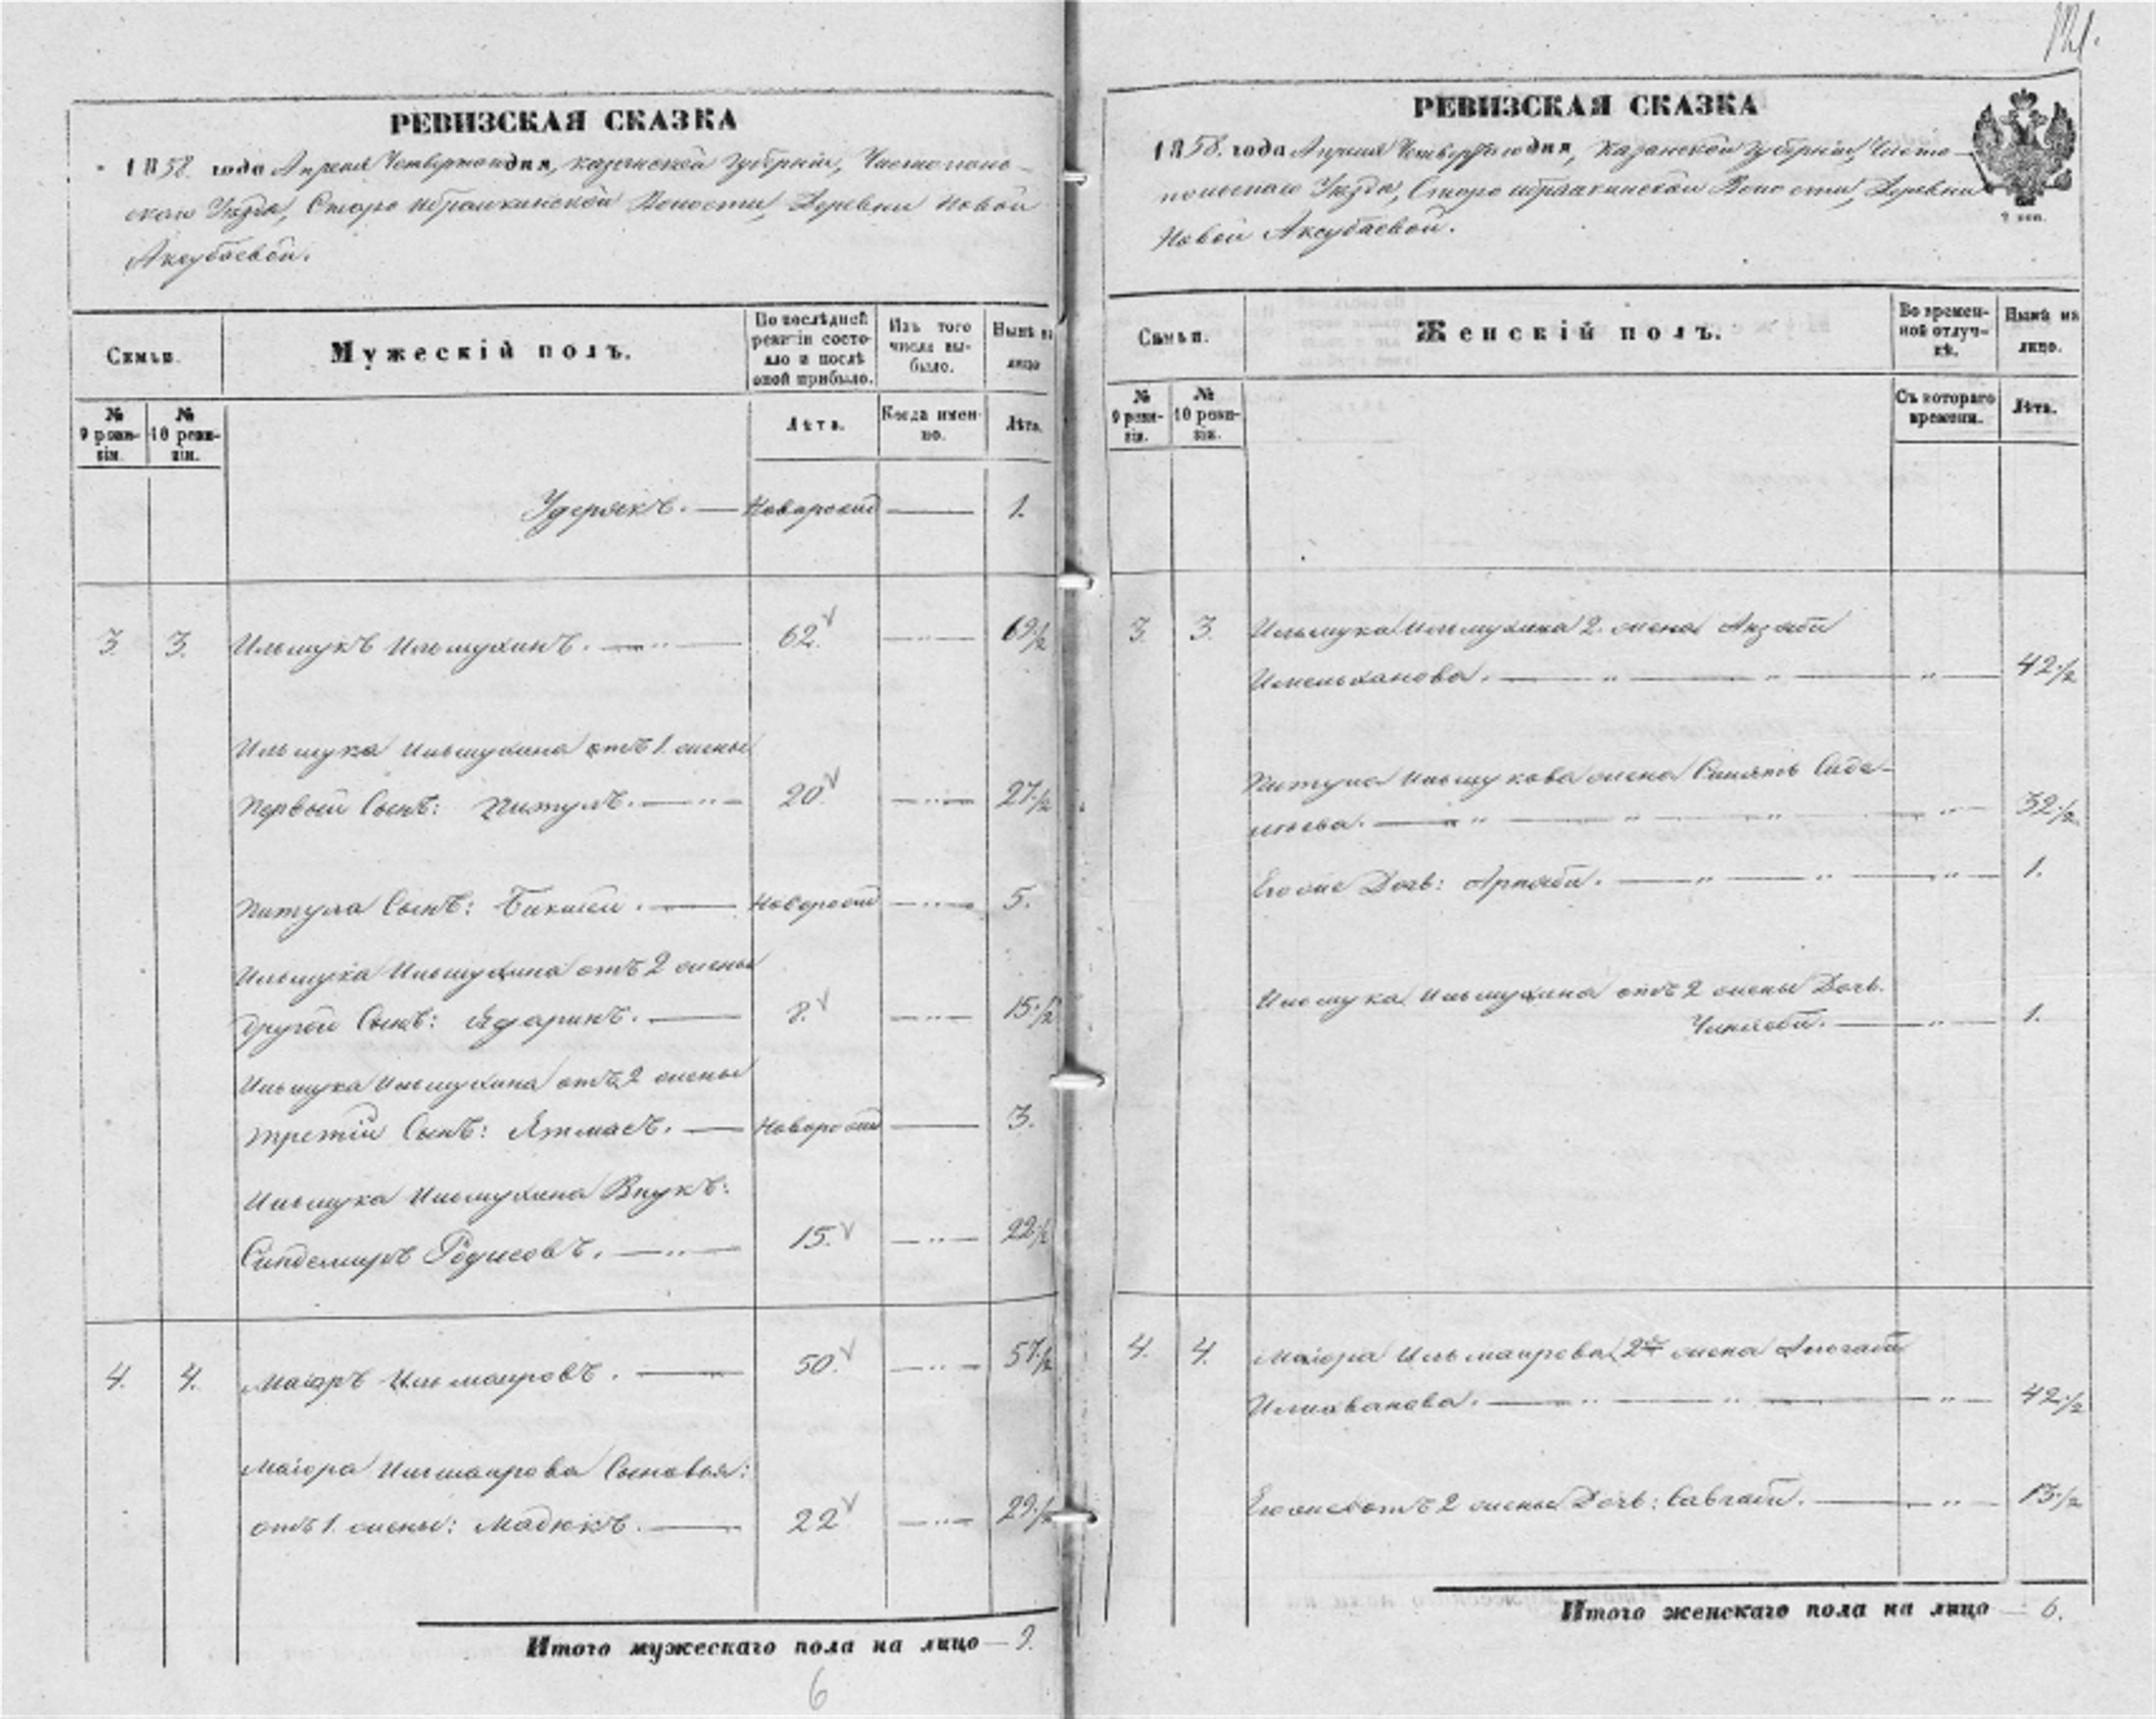 РЕВИЗСКАЯ СКАЗКА
1858 года Апреля Четвертого дня, Казанской Губерніи, Чистополь-
скаго Уезда, Старо Ибрайкинской Волости, Деревни Новой
Аксубаевой.
Семьи.
Мужескій полъ.
По послѣдней ревизіи состояло и послѣ оной прибыло.
Изъ того числа выбыло.
Нынѣ на лицо
№ 9 ревизіи.
№ 10 ревизіи.
Лѣта.
Когда именно.
Лѣта.
Удерякъ. Новорожд 1.
3. 3. Ильмукъ Ильмухинъ. 62. 69 1/2
Ильмука Ильмухина отъ 1. жены
Первый Сынъ: Питулъ. 20. 27 1/2
Питула Сынъ: Бикшеи. Новорожд 5.
Ильмука Ильмухина отъ 2 жены
другой Сынъ: 8. 15 1/2
Ильмука Ильмухина отъ 2 жены
третій Сынъ: Ятмасъ. Новорожд 3.
Ильмука Ильмухина Внукъ:
Синдемиръ 15. 22 1/2
4. 4. Маіоръ Ильмаировъ. 50. 57 1/2
Маіора Ильмаирова Сыновья:
отъ 1. жены: Мадюкъ. 22 29 1/2
Итого мужескаго пола на лицо — 9.
6
РЕВИЗСКАЯ СКАЗКА
1858. года Апреля Четвертого дня, Казанской Губерніи, Чисто-
польскаго Уезда, Старо Ибрайкинской Волости, Деревни
Новой Аксубаевой.
2 коп.
Семьи.
Женскій полъ.
Во временной отлучкѣ.
Нынѣ на лицо.
№ 9 ревизіи.
№ 10 ревизіи.
Съ котораго времени.
Лѣта.
3. 3. Ильмука Ильмухина 2. жена
Ишельханова. 42 1/2
Питула Ильмукова жена 
32 1/2
Его же Дочь: Арпяби. 1.
Ильмука Ильмухина отъ 2 жены Дочь.
Чиняби. 1.
4. 4. Маіора Ильмаирова 2я жена
42 1/2
Его же отъ 2 жены Дочь: Савгаби. 13 1/2
Итого женскаго пола на лицо — 6.